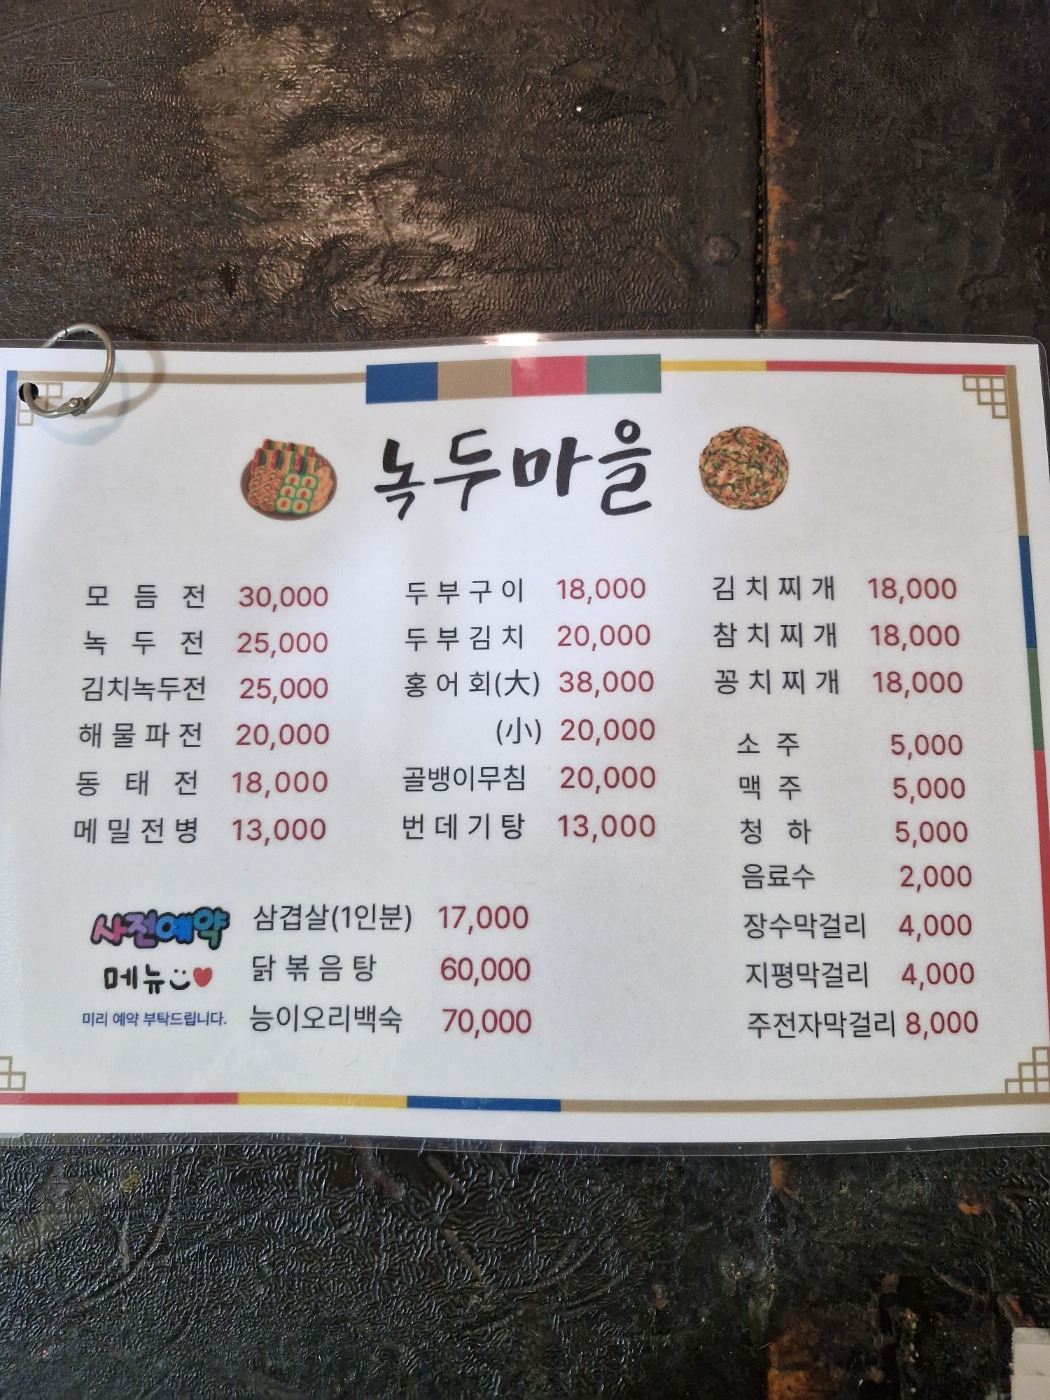 녹두마을
모듬전 30,000
녹두전 25,000
김치녹두전 25,000
해물파전 20,000
동태전 18,000
메밀전병 13,000
두부구이 18,000
두부김치 20,000
홍어회(大) 38,000
(小) 20,000
골뱅이무침 20,000
번데기탕 13,000
김치찌개 18,000
참치찌개 18,000
꽁치찌개 18,000
소주 5,000
맥주 5,000
청하 5,000
음료수 2,000
장수막걸리 4,000
지평막걸리 4,000
주전자막걸리 8,000
사전예약
메뉴
미리 예약 부탁드립니다.
삼겹살(1인분) 17,000
닭볶음탕 60,000
능이오리백숙 70,000